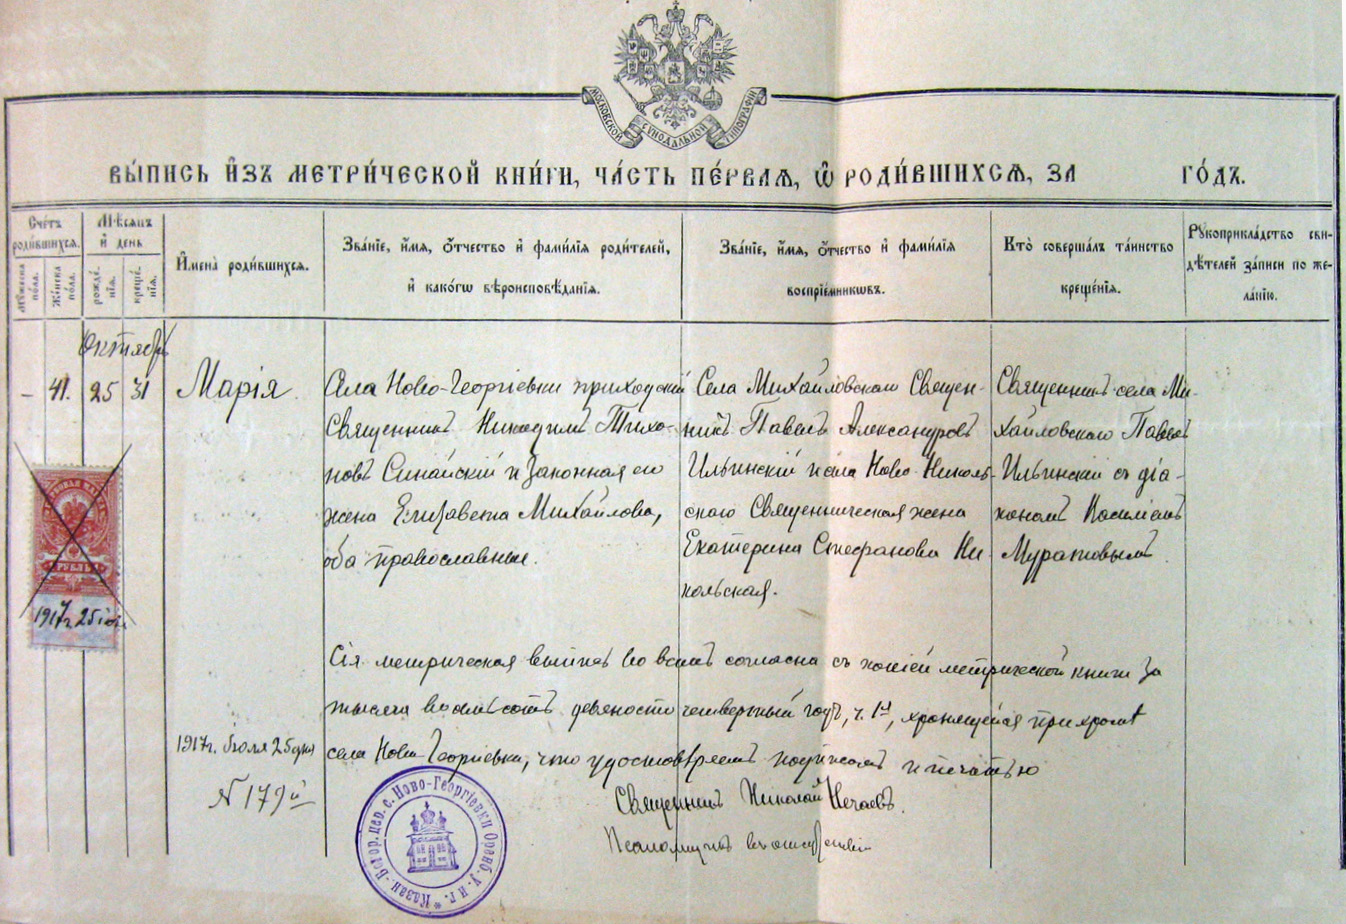 МОСКОВСКОЙ СѴНОДАЛЬНОЙ ТИПОГРАФІИ
ВЫ́ПИСЬ И҆ЗЪ МЕТРИ́ЧЕСКОЙ КНИ́ГИ, ЧА́СТЬ ПЕ́РВАѦ, Ѽ РОДИ́ВШИХСѦ, ЗА ГО́ДЪ.
Сче́тъ роди́вшихсѧ.
Мꙋ́жеска по́ла.
Же́нска по́ла.
Мѣ́сѧцъ и҆ де́нь
рожде́нїѧ.
креще́нїѧ.
И҆мена̀ роди́вшихсѧ.
Зва́нїе, и҆́мѧ, ѻ҆́тчество и҆ фами́лїѧ роди́телей,
и҆ како́гѡ вѣроисповѣ́данїѧ.
Зва́нїе, и҆́мѧ, ѻ҆́тчество и҆ фами́лїѧ
воспрїе́мникѡвъ.
Кто̀ соверша́лъ та́инство
креще́нїѧ.
Рꙋкоприкла́дство сви-
дѣ́телей за́писи по же-
ла́нїю.
Октябрь
– 41. 25 31
Марія.
Села Ново-Георгіевки приходскій
Священникъ Никодимъ Тихо-
новъ Синайскій и законная его
жена Елизавета Михайлова,
оба православные.
Села Михайловскаго Священ-
никъ Павелъ Александровъ
Ильинскій и села Ново-Николь-
скаго Священническая жена
Екатерина Стефанова Ни-
кольская.
Священникъ села Ми-
хайловскаго Павелъ
Ильинскій съ діа-
кономъ Василіемъ
Муратовымъ.
РУБЛЬ
1917г. 25 іюля
Сія метрическая выпись во всемъ согласна съ копіей метрической книги за
тысяча восемьсотъ девяносто четвертый годъ, ч. 1я, хранящейся при храмѣ
1917г. Іюля 25 дня
села Ново-Георгіевки, что удостовѣряемъ подписомъ и печатью
№ 179й
Священникъ Николай Нечаевъ.
Псаломщикъ
Казан.-Богор. цер. с. Ново-Георгіевки Оренб. у. и г.